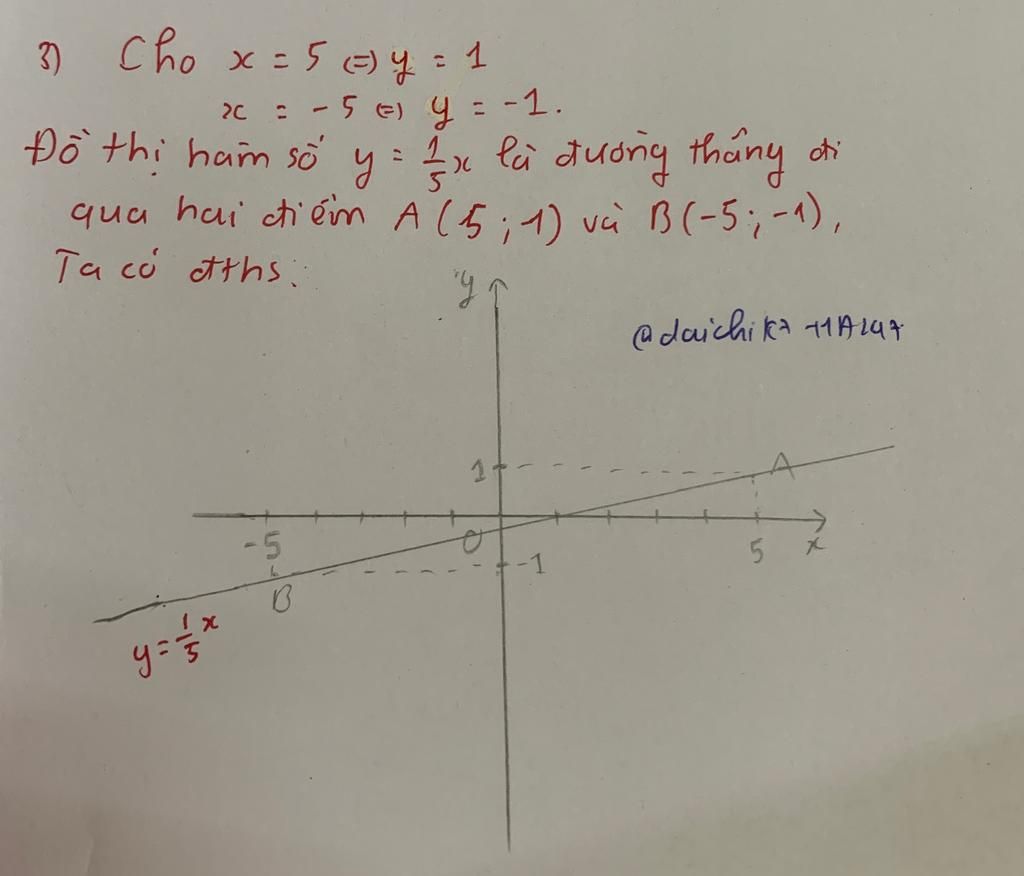 3) Cho x = 5 (=) y = 1
x = -5 (=) y = -1.
Đồ thị hàm số y = 1/5 x là đường thẳng đi
qua hai điểm A(5;1) và B(-5;-1),
Ta có đths:
y
1
A
-5
O
5
x
-1
B
y = 1/5 x